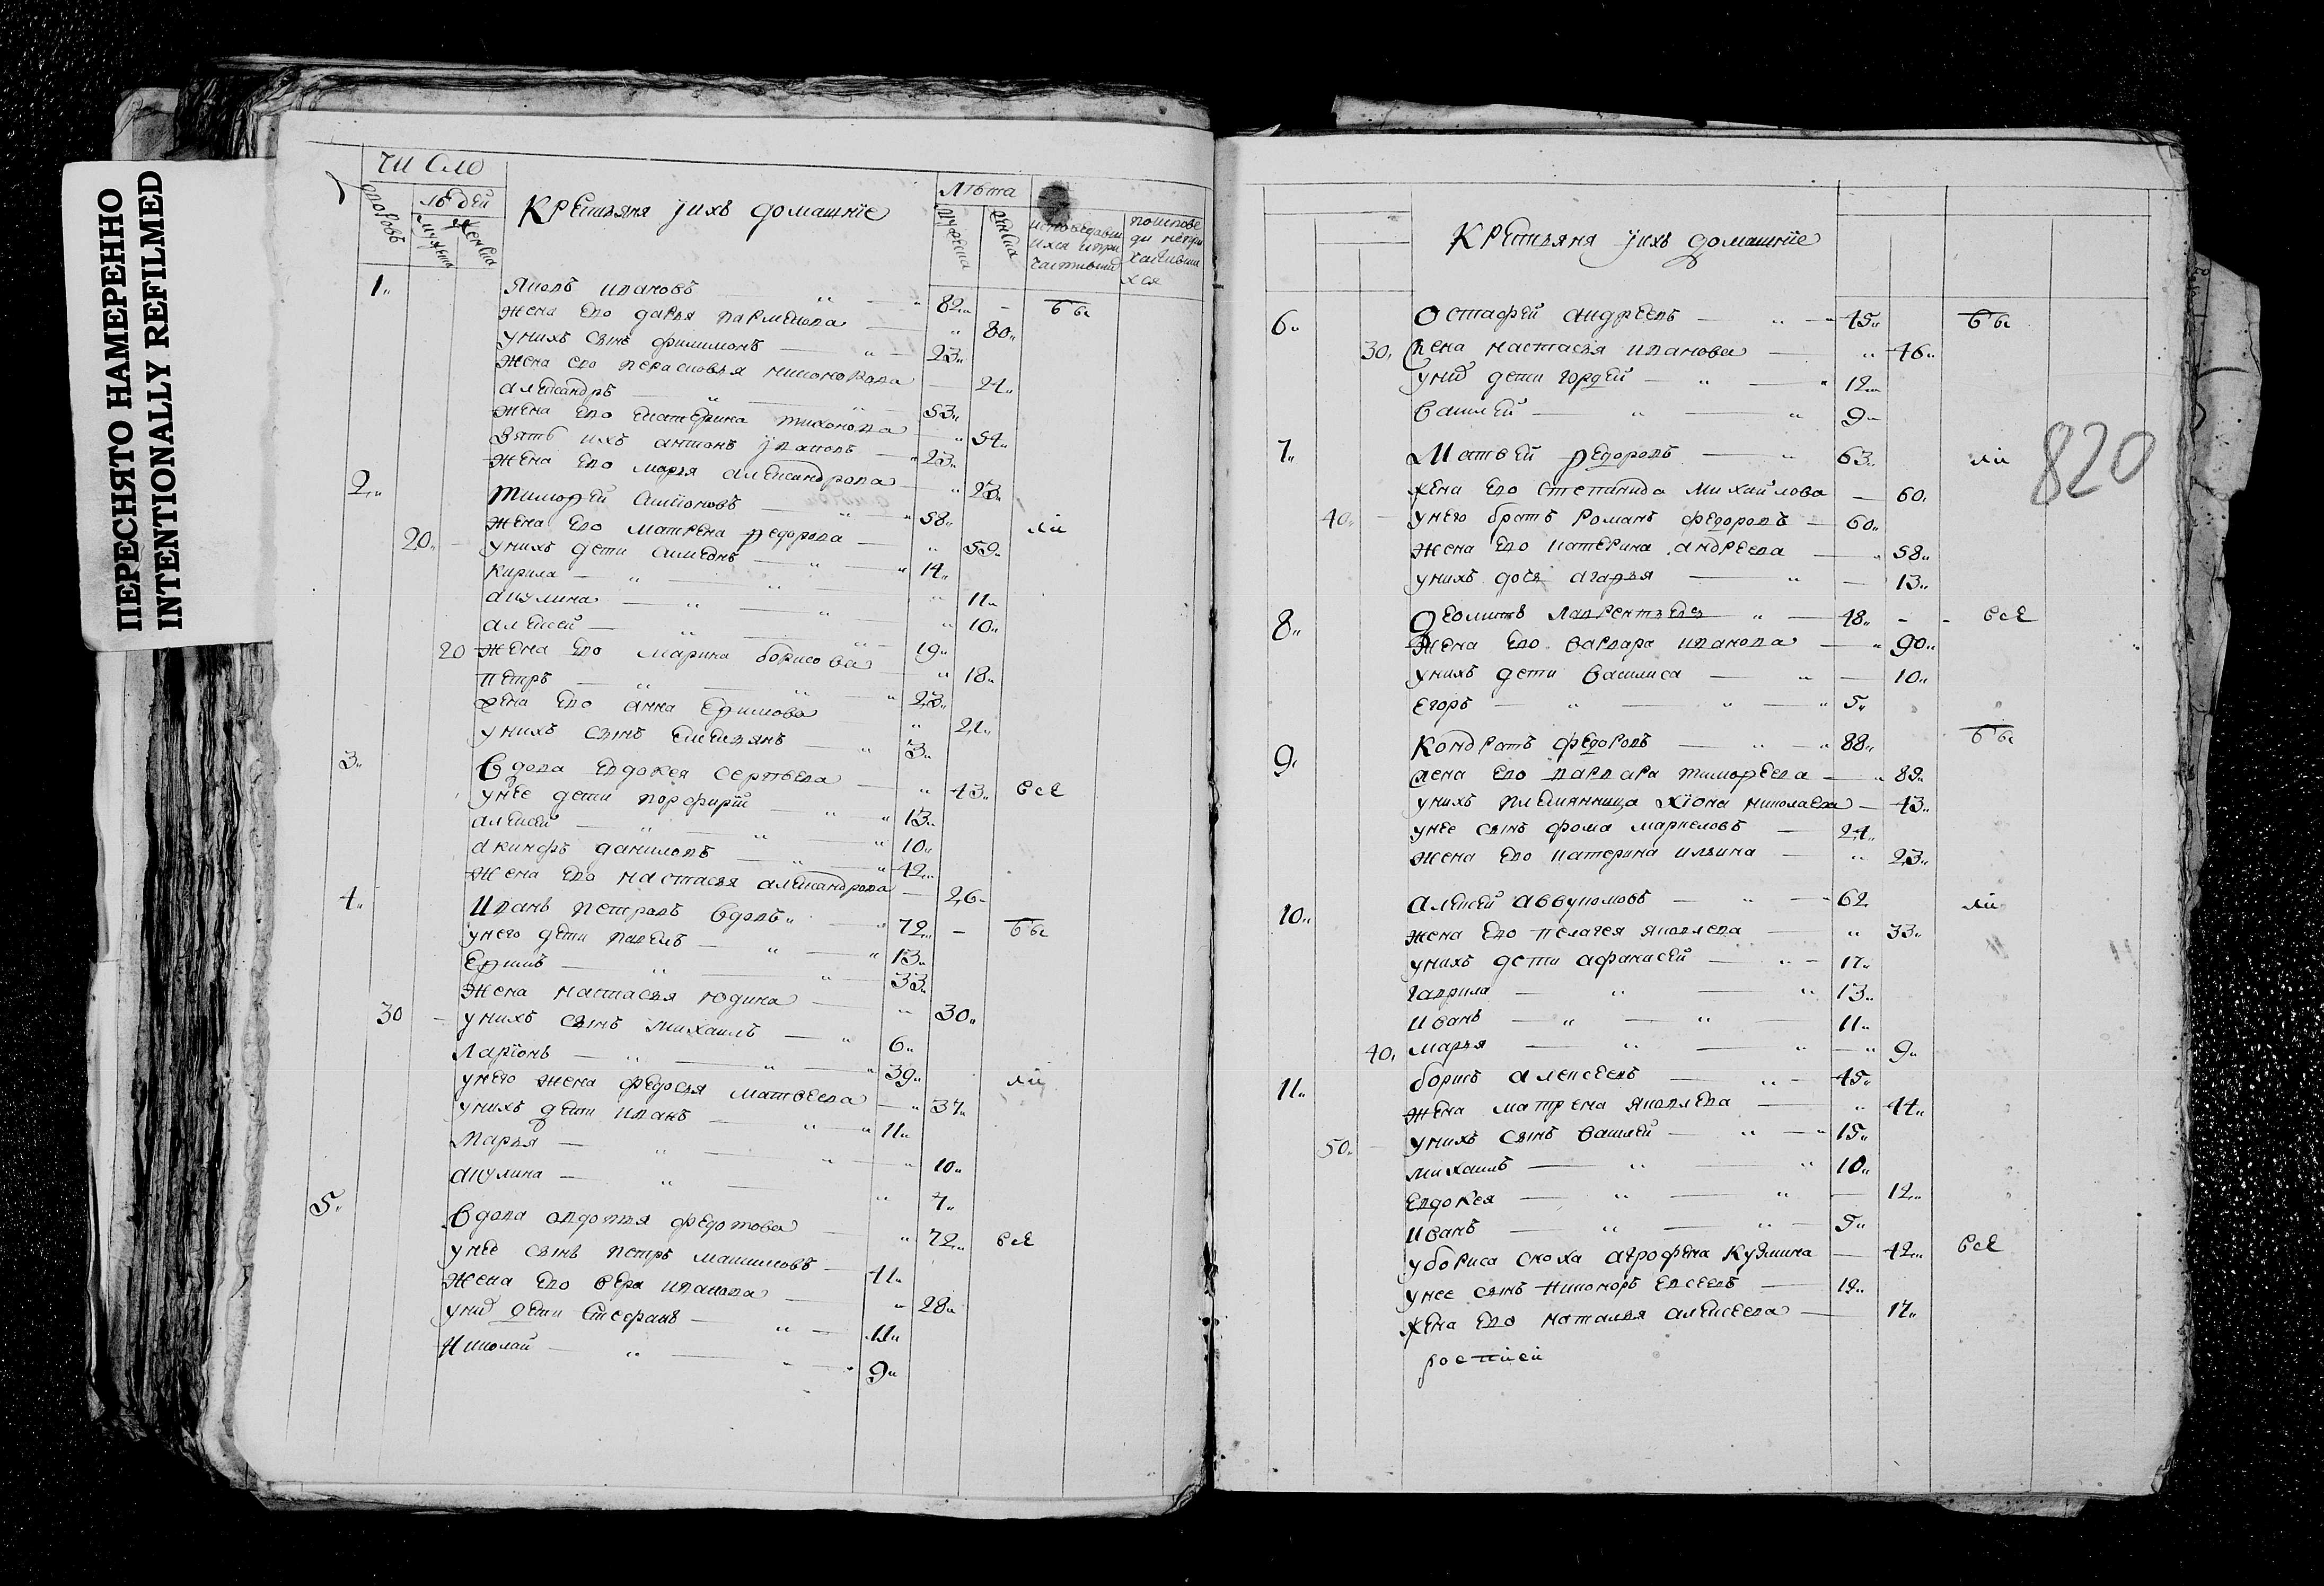 ПЕРЕСНЯТО НАМЕРЕННО
INTENTIONALLY REFILMED
число
дворовъ
людей
мужеска
женска
Крестьяня ихъ домашние
лѣта
мужеска
женска
исповедавш
ихся и при
частивши
по испове
ди непри
частивши
хся
1. Яковъ ивановъ 82. бы
жена ево дарья парменова 80.
у нихъ сынъ филимонъ 23.
жена ево парасковья никонорова 24.
александръ 53.
жена ево екатерина тихонова 54.
зять ихъ антонъ 23.
жена ево марья александрова 23.
2. тимофей симионовъ 58. ли
жена ево матрена федорова 59.
20. у нихъ дети симеонъ 14.
кирила 11.
акулина 10.
алексей 19.
20 жена ево марина борисова 18.
петръ 23.
жена ево анна ефимова 24.
у нихъ сынъ емельянъ 3.
3. вдова евдокея сергѣева 43. всѣ
у нее дети порфирий 13.
алексей 10.
акинфъ даниловъ 42.
жена ево настасья александрова 26.
4. иванъ петровъ вдовъ 72. бы
у него дети павелъ 13.
ефимъ 33.
жена настасья юдина 30.
30 у нихъ сынъ михаилъ 6.
ларионъ 39. ли
у него жена федосья матвеева 37.
у нихъ дети иванъ 11.
марья 10.
акулина 7.
5. вдова авдотья федотова 72. всѣ
у нее сынъ петръ 41.
жена ево вера иванова 28.
дети стефанъ 11.
николай 9.
Крестьяня ихъ домашние
820
6. остафей андреевъ 45. бы
30. жена настасья иванова 46.
дети гордей 12.
василей 9
7. матвей федоровъ 63. ли
жена ево степанида михайлова 60.
40. у него братъ романъ федоровъ 60.
жена ево катерина андреева 58.
у нихъ дочь агафья 13.
8. лаврентьевъ 48. всѣ
жена ево варвара иванова 90.
у нихъ дети василиса 10.
егоръ 5.
9. кондратъ федоровъ 88. бы
жена ево варвара тимофеева 89.
у нихъ племянница хиона николаева 43.
у нее сынъ фома маркеловъ 24.
жена ево катерина ильина 23.
10. алексей аввукомовъ 62 ли
жена ево пелагея яковлева 33.
у нихъ дети афанасей 17.
гаврила 13.
иванъ 11.
40. марья 9.
11. борисъ алексеевъ 45.
жена матрена яковлева 44.
50. у нихъ сынъ василей 15.
михаилъ 10.
евдокея 12.
иванъ 5.
у бориса сноха агрофена кузмина 42. всѣ
у нее сынъ никоноръ евсеевъ 19.
жена ево наталья алексеева 17.